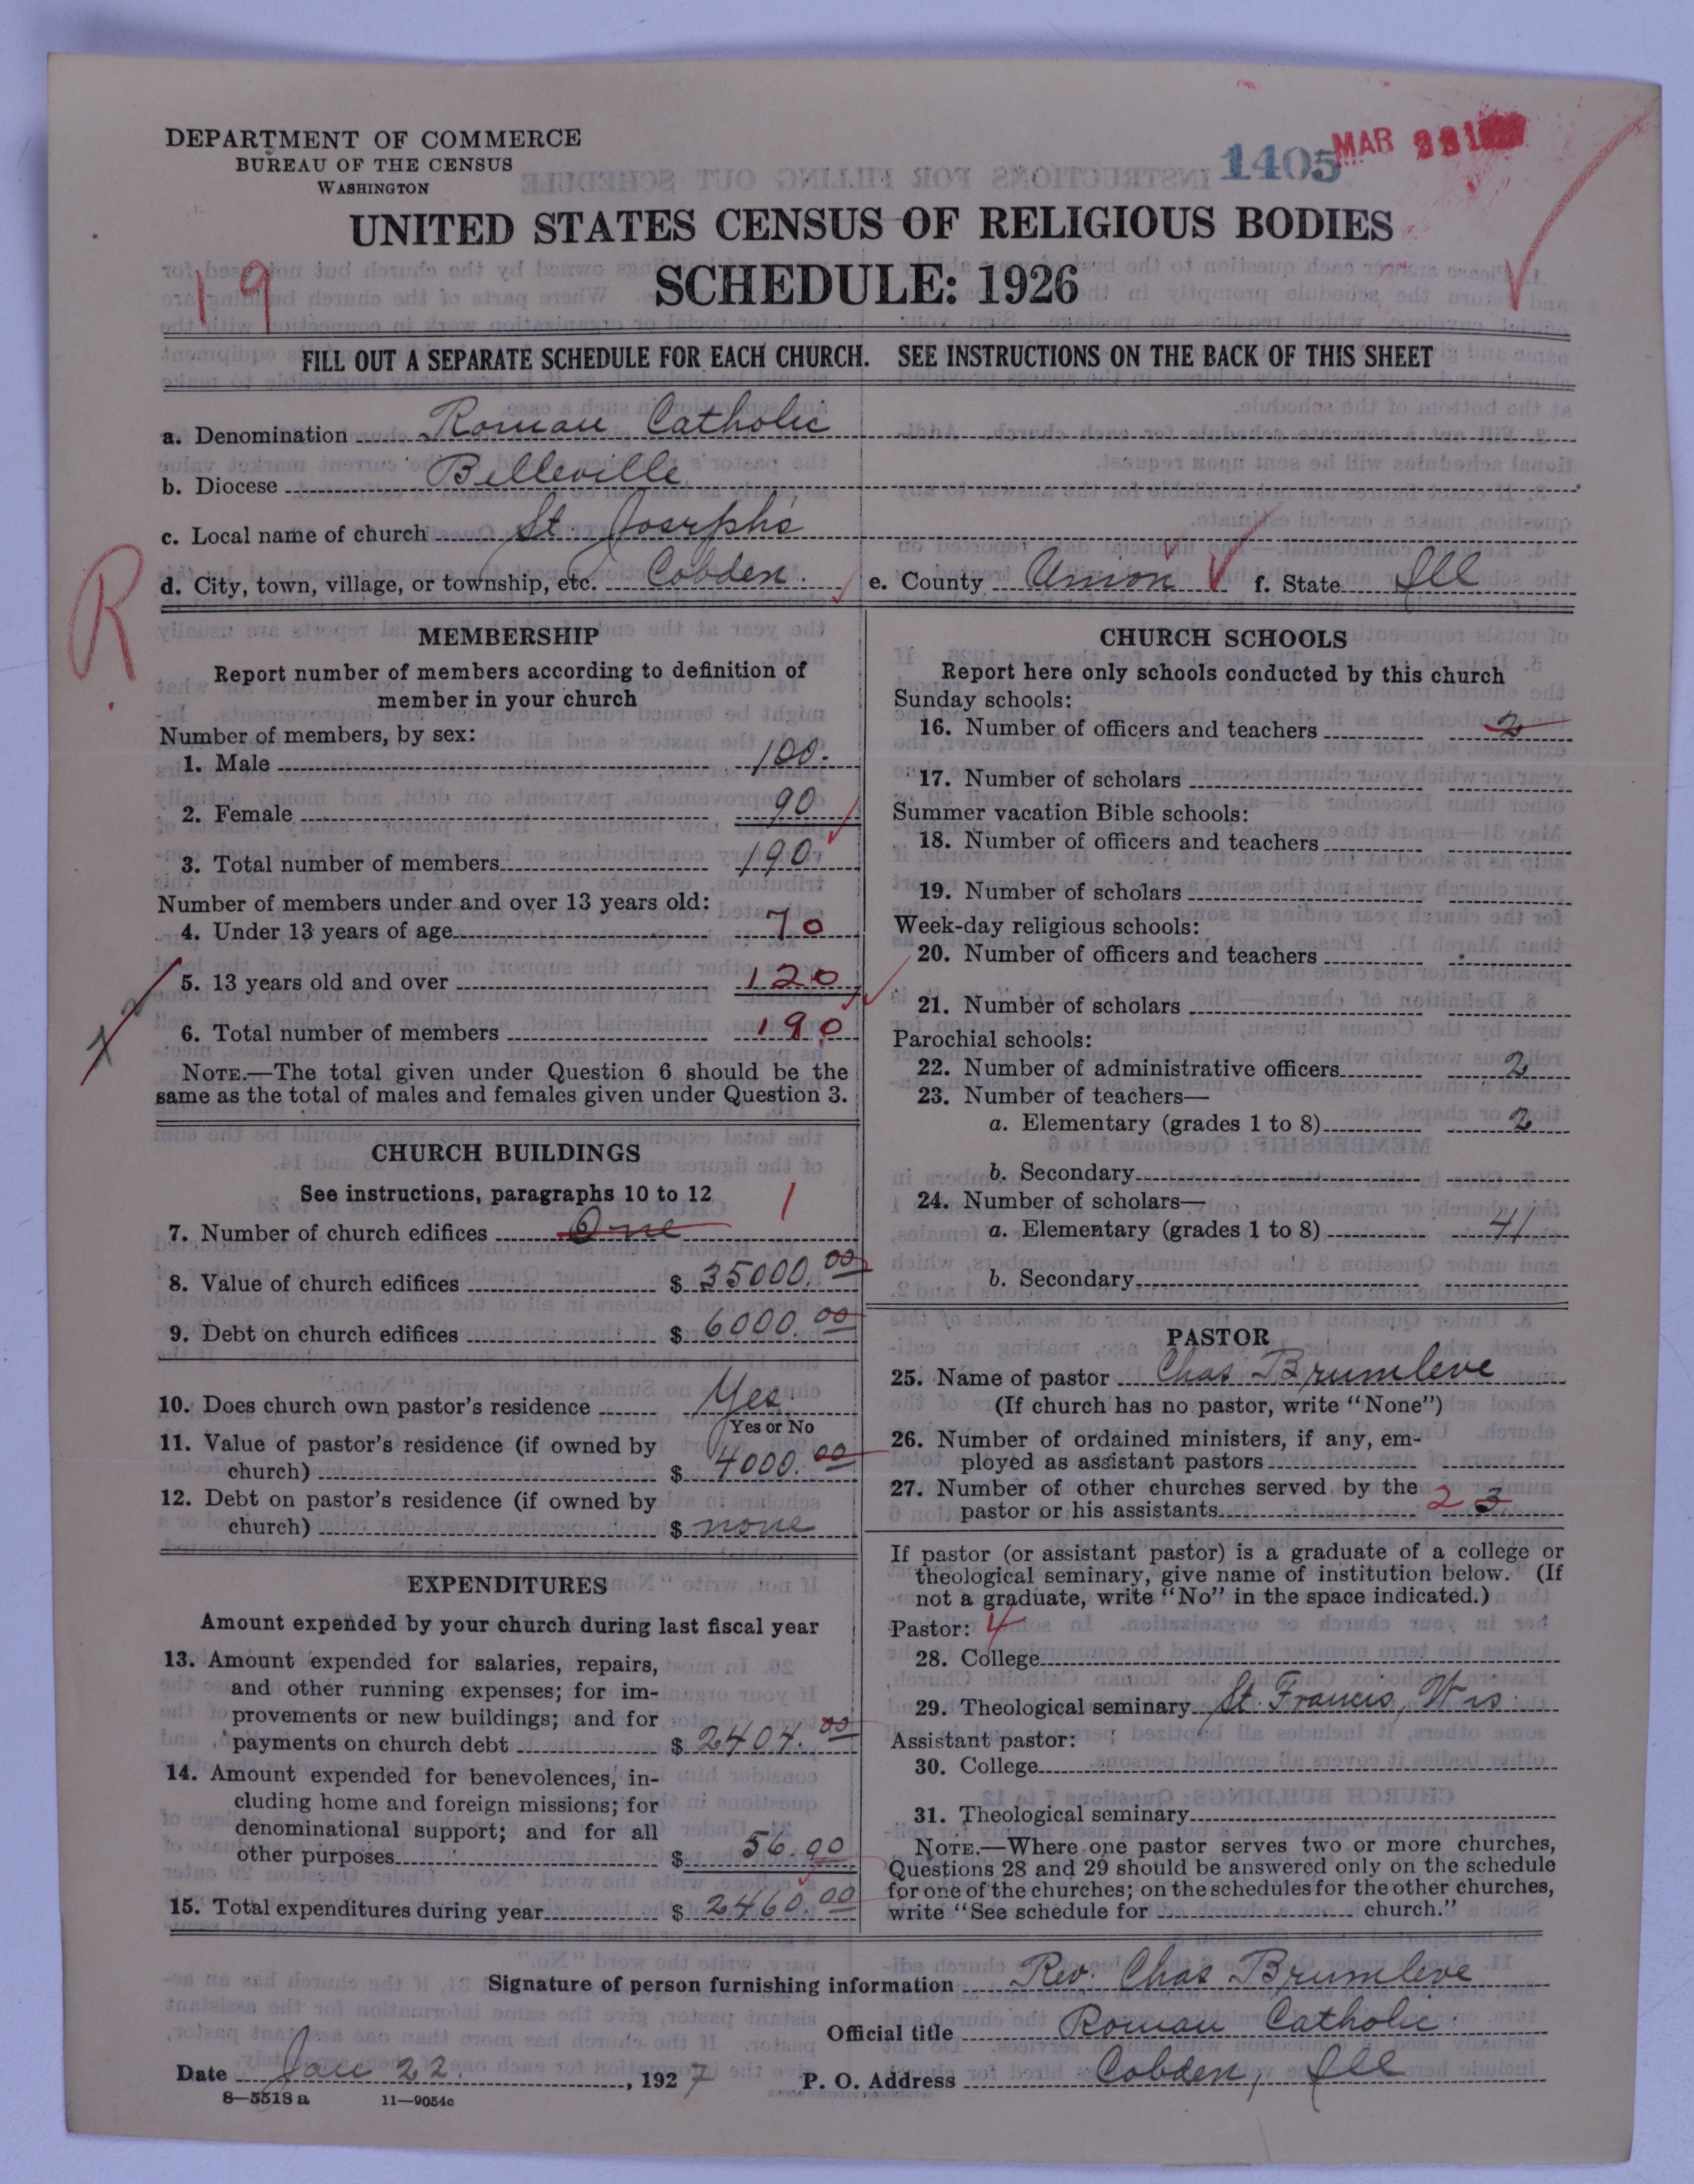 DEPARTMENT OF COMMERCE
BUREAU OF THE CENSUS
WASHINGTON
1405
MAR
UNITED STATES CENSUS OF RELIGIOUS BODIES
SCHEDULE: 1926
19
FILL OUT A SEPARATE SCHEDULE FOR EACH CHURCH. SEE INSTRUCTIONS ON THE BACK OF THIS SHEET
a. Denomination Roman Catholic
b. Diocese Belleville
c. Local name of church St. Joseph's
d. City, town, village, or township, etc. Cobden. e. County Union f. State Ill
R
MEMBERSHIP
Report number of members according to definition of
member in your church
Number of members, by sex:
1. Male 100.
2. Female 90
3. Total number of members 190
Number of members under and over 13 years old:
4. Under 13 years of age 70
5. 13 years old and over 120
6. Total number of members 190
NOTE.—The total given under Question 6 should be the
same as the total of males and females given under Question 3.
CHURCH BUILDINGS
See instructions, paragraphs 10 to 12
7. Number of church edifices One 1
8. Value of church edifices $ 35000.00
9. Debt on church edifices $ 6000.00
10. Does church own pastor's residence Yes
Yes or No
11. Value of pastor's residence (if owned by
church) $ 4000.00
12. Debt on pastor's residence (if owned by
church) $ none
EXPENDITURES
Amount expended by your church during last fiscal year
13. Amount expended for salaries, repairs,
and other running expenses; for im-
provements or new buildings; and for
payments on church debt $ 2404.00
14. Amount expended for benevolences, in-
cluding home and foreign missions; for
denominational support; and for all
other purposes $ 56.00
15. Total expenditures during year $ 2460.00
CHURCH SCHOOLS
Report here only schools conducted by this church
Sunday schools:
16. Number of officers and teachers 2
17. Number of scholars
Summer vacation Bible schools:
18. Number of officers and teachers
19. Number of scholars
Week-day religious schools:
20. Number of officers and teachers
21. Number of scholars
Parochial schools:
22. Number of administrative officers 2
23. Number of teachers—
a. Elementary (grades 1 to 8) 2
b. Secondary
24. Number of scholars—
a. Elementary (grades 1 to 8) 41
b. Secondary
PASTOR
25. Name of pastor Chas Brumleve
(If church has no pastor, write "None")
26. Number of ordained ministers, if any, em-
ployed as assistant pastors
27. Number of other churches served by the
pastor or his assistants 2 3
If pastor (or assistant pastor) is a graduate of a college or
theological seminary, give name of institution below. (If
not a graduate, write "No" in the space indicated.)
Pastor: 4
28. College
29. Theological seminary St. Francis, Wis.
Assistant pastor:
30. College
31. Theological seminary
NOTE.—Where one pastor serves two or more churches,
Questions 28 and 29 should be answered only on the schedule
for one of the churches; on the schedules for the other churches,
write "See schedule for church."
Signature of person furnishing information Rev. Chas Brumleve
Official title Roman Catholic
Date Jan 22. , 1927 P. O. Address Cobden, Ill
8—5518 a 11—9054c